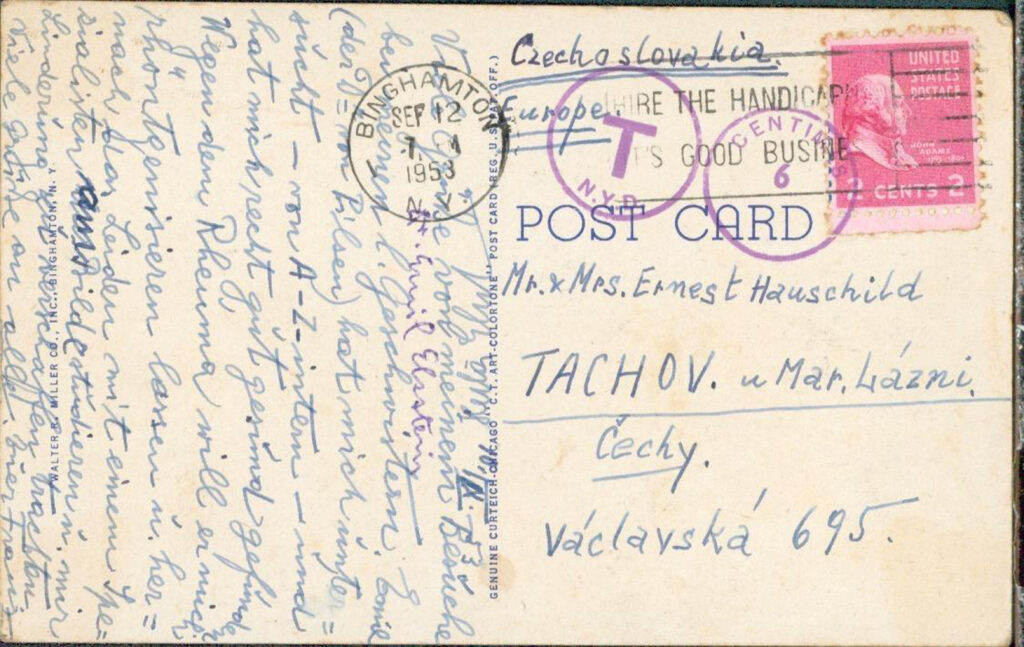 Czechoslovakia.
Europe.
BINGHAMTON
SEP 12
7 PM
1953
N.Y.
HIRE THE HANDICAPP
IT'S GOOD BUSINE
T
N.Y.D.
CENTIMES
6
UNITED
STATES
POSTAGE
JOHN
ADAMS
CENTS 2
POST CARD
Mr. & Mrs. Ernest Hauschild
TACHOV. u Mar. Lázni.
Čechy.
Václavská 695.
GENUINE CURTEICH-CHICAGO "C.T. ART-COLORTONE" POST CARD (REG. U.S. PAT. OFF.)
10, IX. 53
von meinem Besuche
bei meinen l. Geschwistern. Emil
von Pilsen) hat mich unter=
sucht – von A-Z – intern – und
hat mich recht gut gesund gefunden
Wegen dem Rheuma will er mich
lassen u. her=
nach das Leiden mit einem Spe=
zialisten studieren u. mir
Linderung zu verschaffen trachten.
Viele Grüße an alle. Euer Franz
Emil
WALTER R. MILLER CO., INC., BINGHAMTON, N. Y.